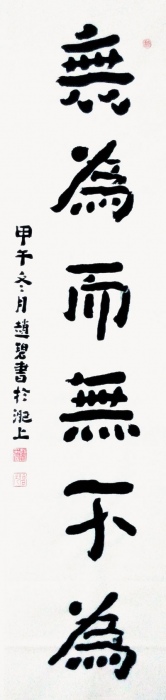 無為而無不為
甲午冬月趙碧書於淝上